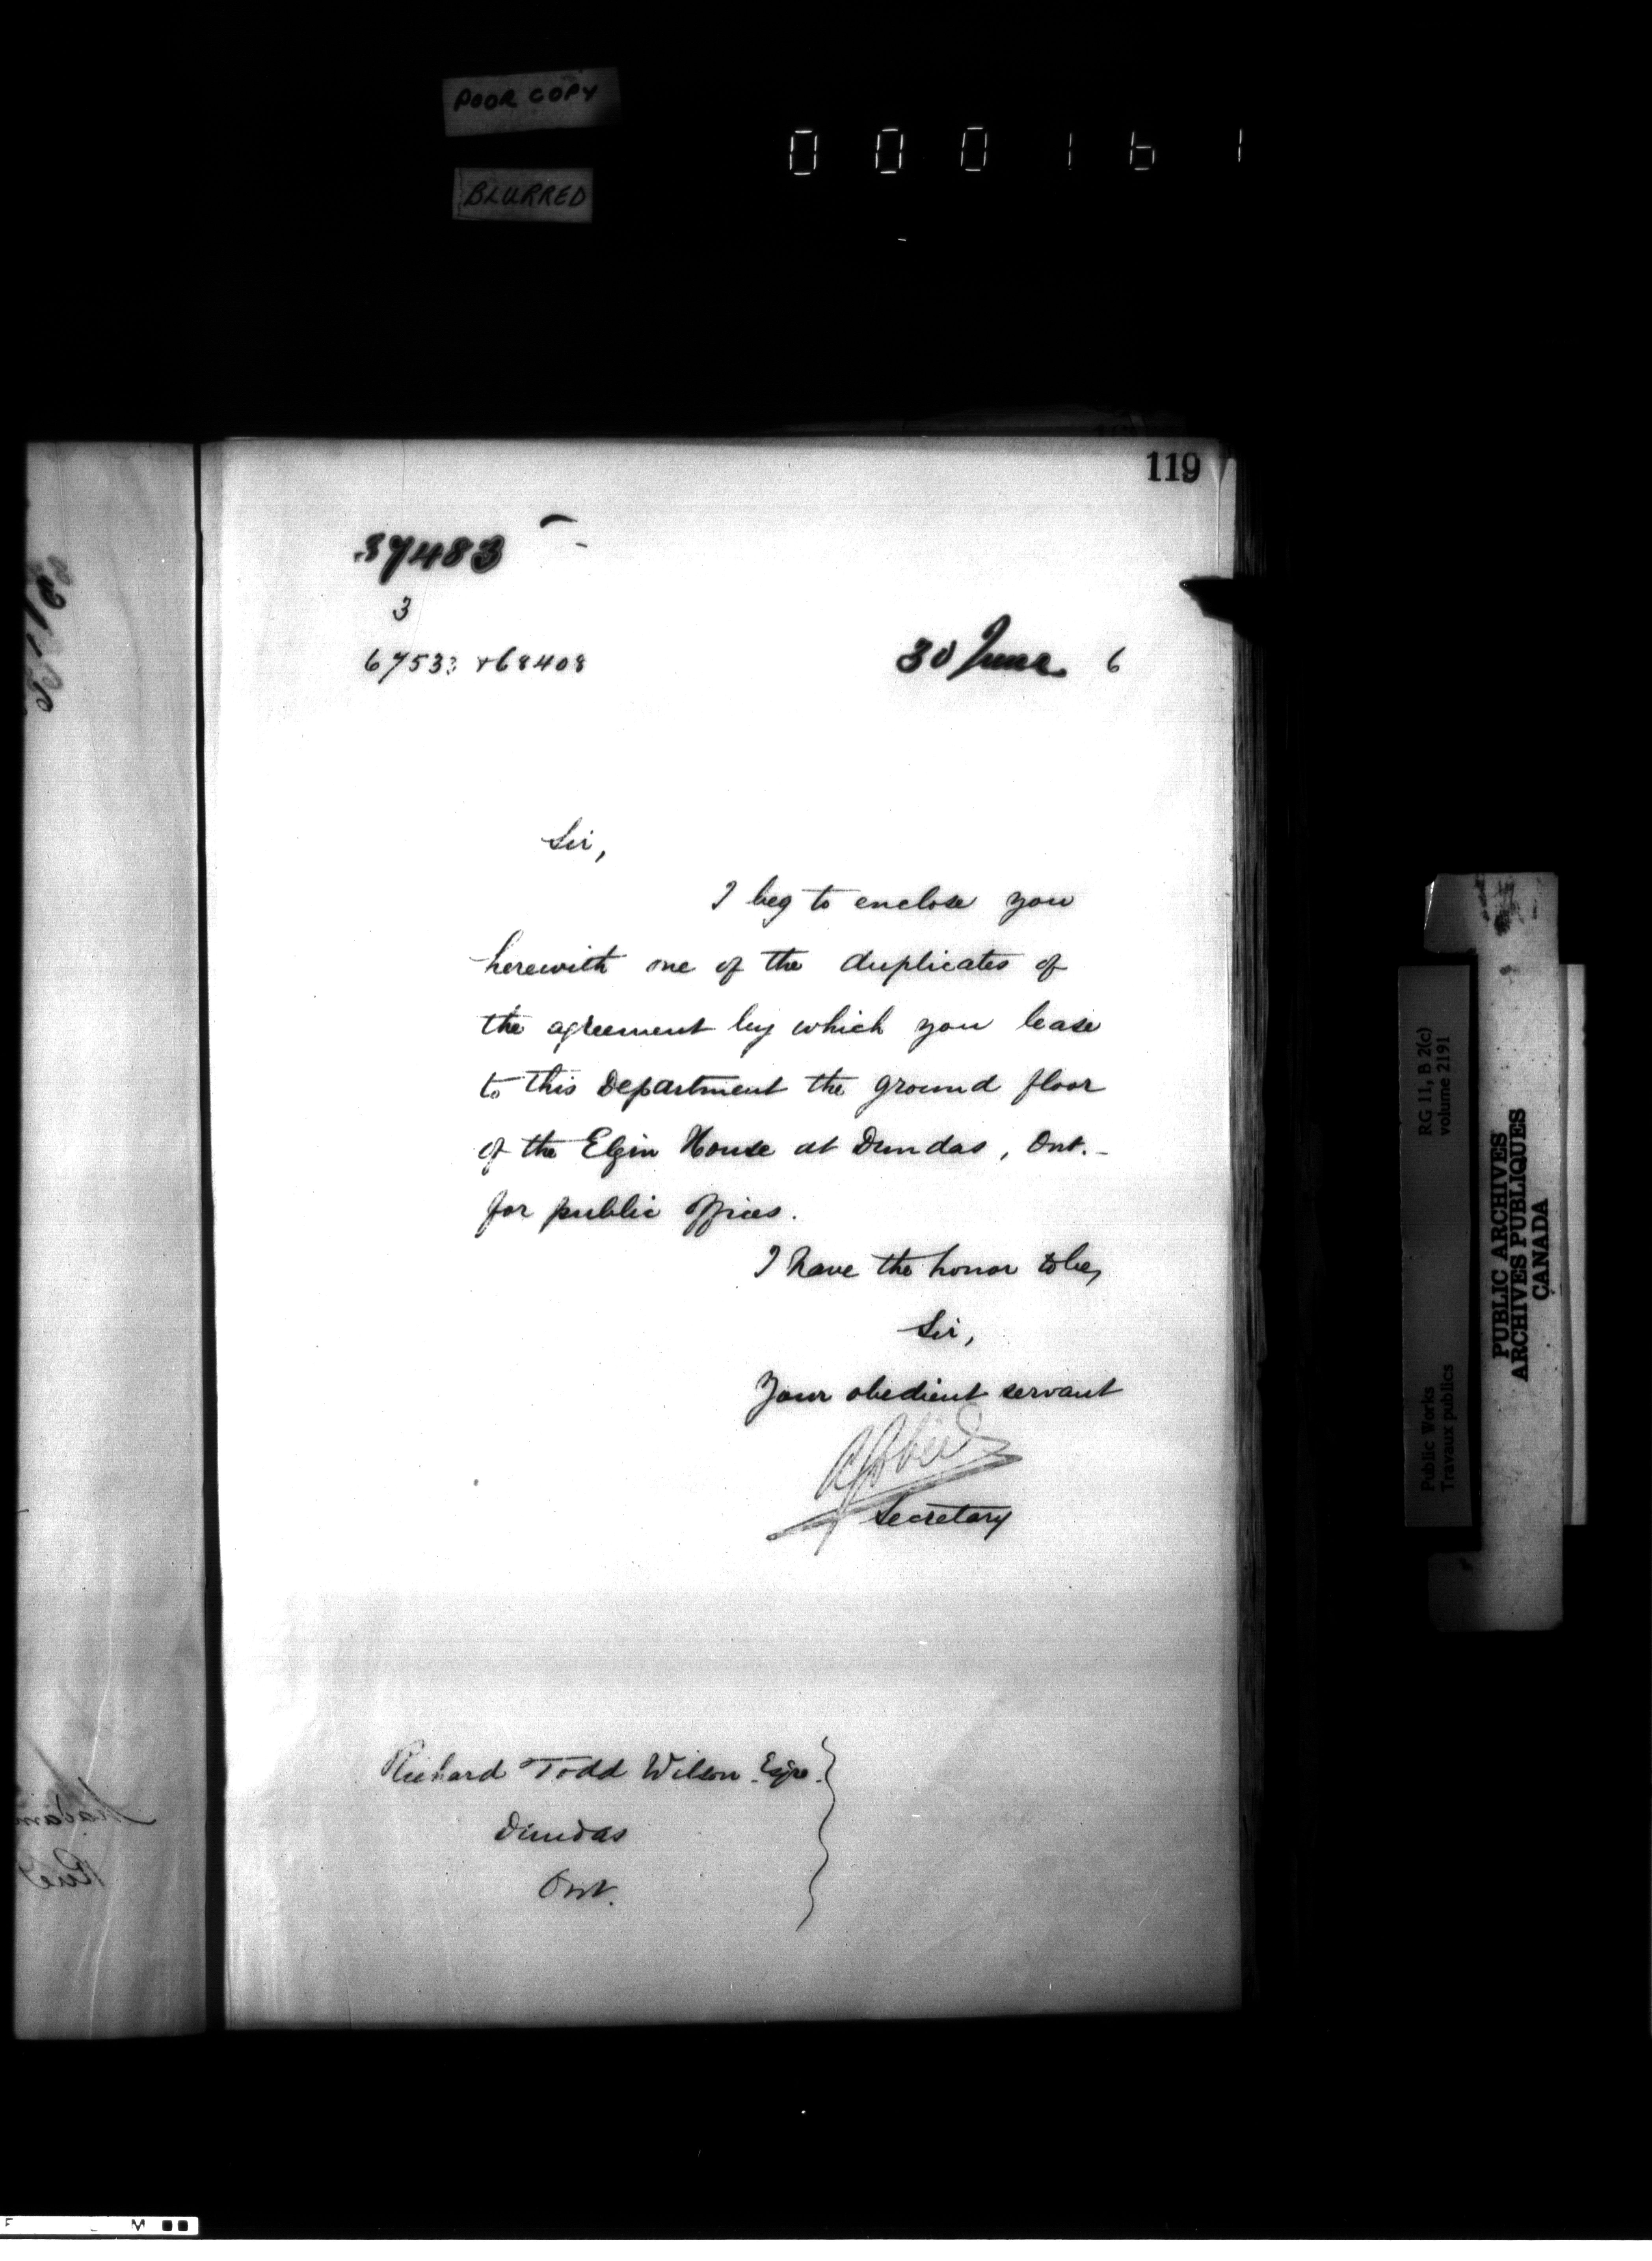 POOR COPY
BLURRED
000161
119
37483
3
67533 + 68408
30 June 6
Sir,
I beg to enclose you
herewith one of the duplicates of
the agreement by which you lease
to this Department the ground floor
of the Elgin House at Dundas, Ont. -
for public offices.
I have the honor to be,
Sir,
Your obedient servant
Secretary
Richard Todd Wilson Esqre.
Dundas
Ont.
RG 11, B 2(c)
volume 2191
Public Works
Travaux publics
PUBLIC ARCHIVES
ARCHIVES PUBLIQUES
CANADA